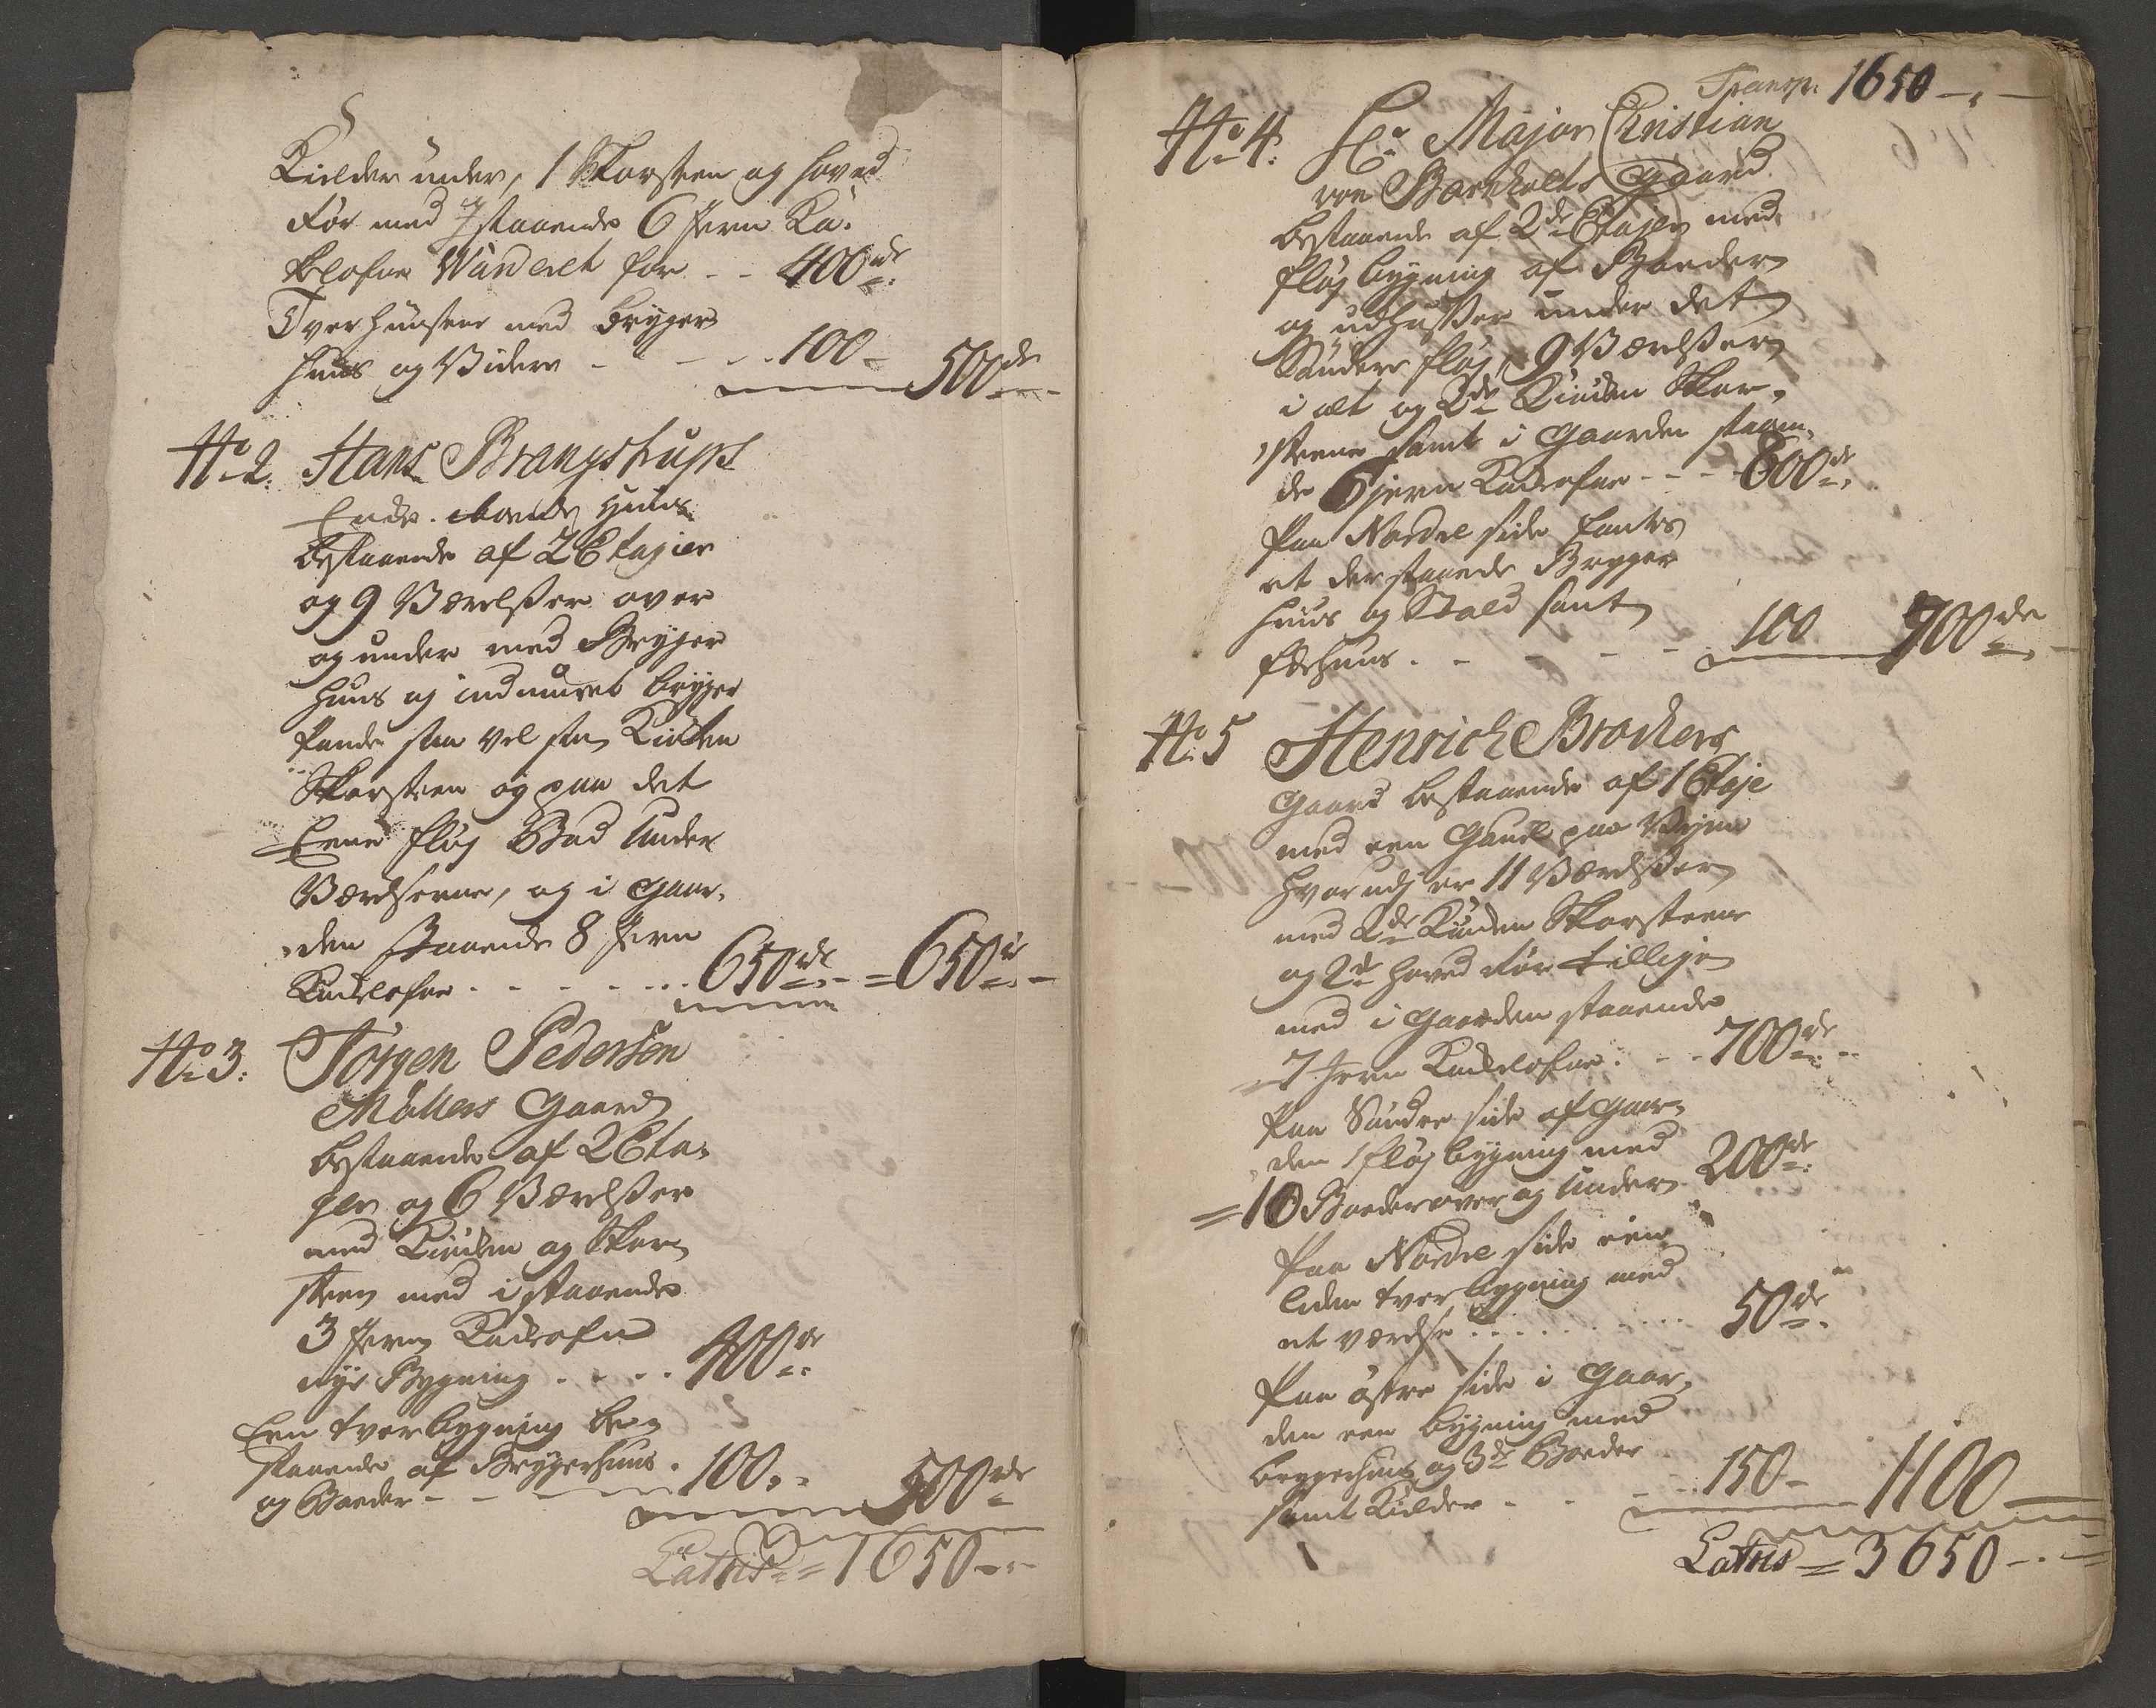 Kielder under, 1 Skorsteen og hoved
dør med istaaende 6 Jern Ka-
kelofne Wurderet for - - 400 rdr.
Tverhuusene med Bryger
huus og Videre - - - - 100 - 500 rdr
No 2. Hans Brangstrups
Huus
bestaaende af 2 Etagier
og 9 Værelsser over
og under med Brygger
huus og indmuret bryger
Pande saa vel som Kiøcken
Skorsteen og paa det
Eene fløj Bod Under
Værelserne, og i Gaar-
den staaende 8 Jern
Kackelofne . - - - - . . . 650 rdr. - = 650 rdr. -
No 3. Jørgen Pedersen
Møllers Gaard
bestaaende af 2 Eta-
ger og 6 Værelsser
med Kiøcken og Skor
steen med istaaende
3 Jern Kackelofne
nye Bygning . . . . 400 rdr
Een tverbygning be-
staaende af Brygerhuus . 100. -
og Boeder - - - 500 rdr
Latus = 1650 - -
Transp: 1650 - . -
No 4. Hr. Major Christian
von Gaard
bestaaende af 2de Etager med
fløj bygning af Boeder
og udhusser under det
Søndere fløj, 9 Værelsser
i alt og 2de Kiøcken Skor-
steene samt i Gaarden staaen-
de 6 Jern Kackelofne - - - 600 rdr.
Paa Nordre side
et der staaende Brygger
huus og Stald samt
fæehuus . - - - - 100 700 rdr. -
No 5 Henrich Brockers
Gaard bestaaende af 1 Etage
med een Gaufl paa Vejen
hvorudj er 11 Værelsser
med 2de Kiøcken Skorsteene
og 2de hoved dør tillige
med i Gaarden staaende
= 7 Jern Kackelofne . - - 700 rdr. -
Paa Søndre side af Gaar-
den 1 fløj bygning med
= 10 Boeder over og under 200 rdr.
Paa Nordre side een
liden tverbygning med
et værelse . . . . . . . . . 50 rdr.
Paa østre side i Gaar-
den een bygning med
bryggerhuus og 3de Boeder
samt Kielder - - - . . 150 - 1100 -
Latus = 3650 - . -